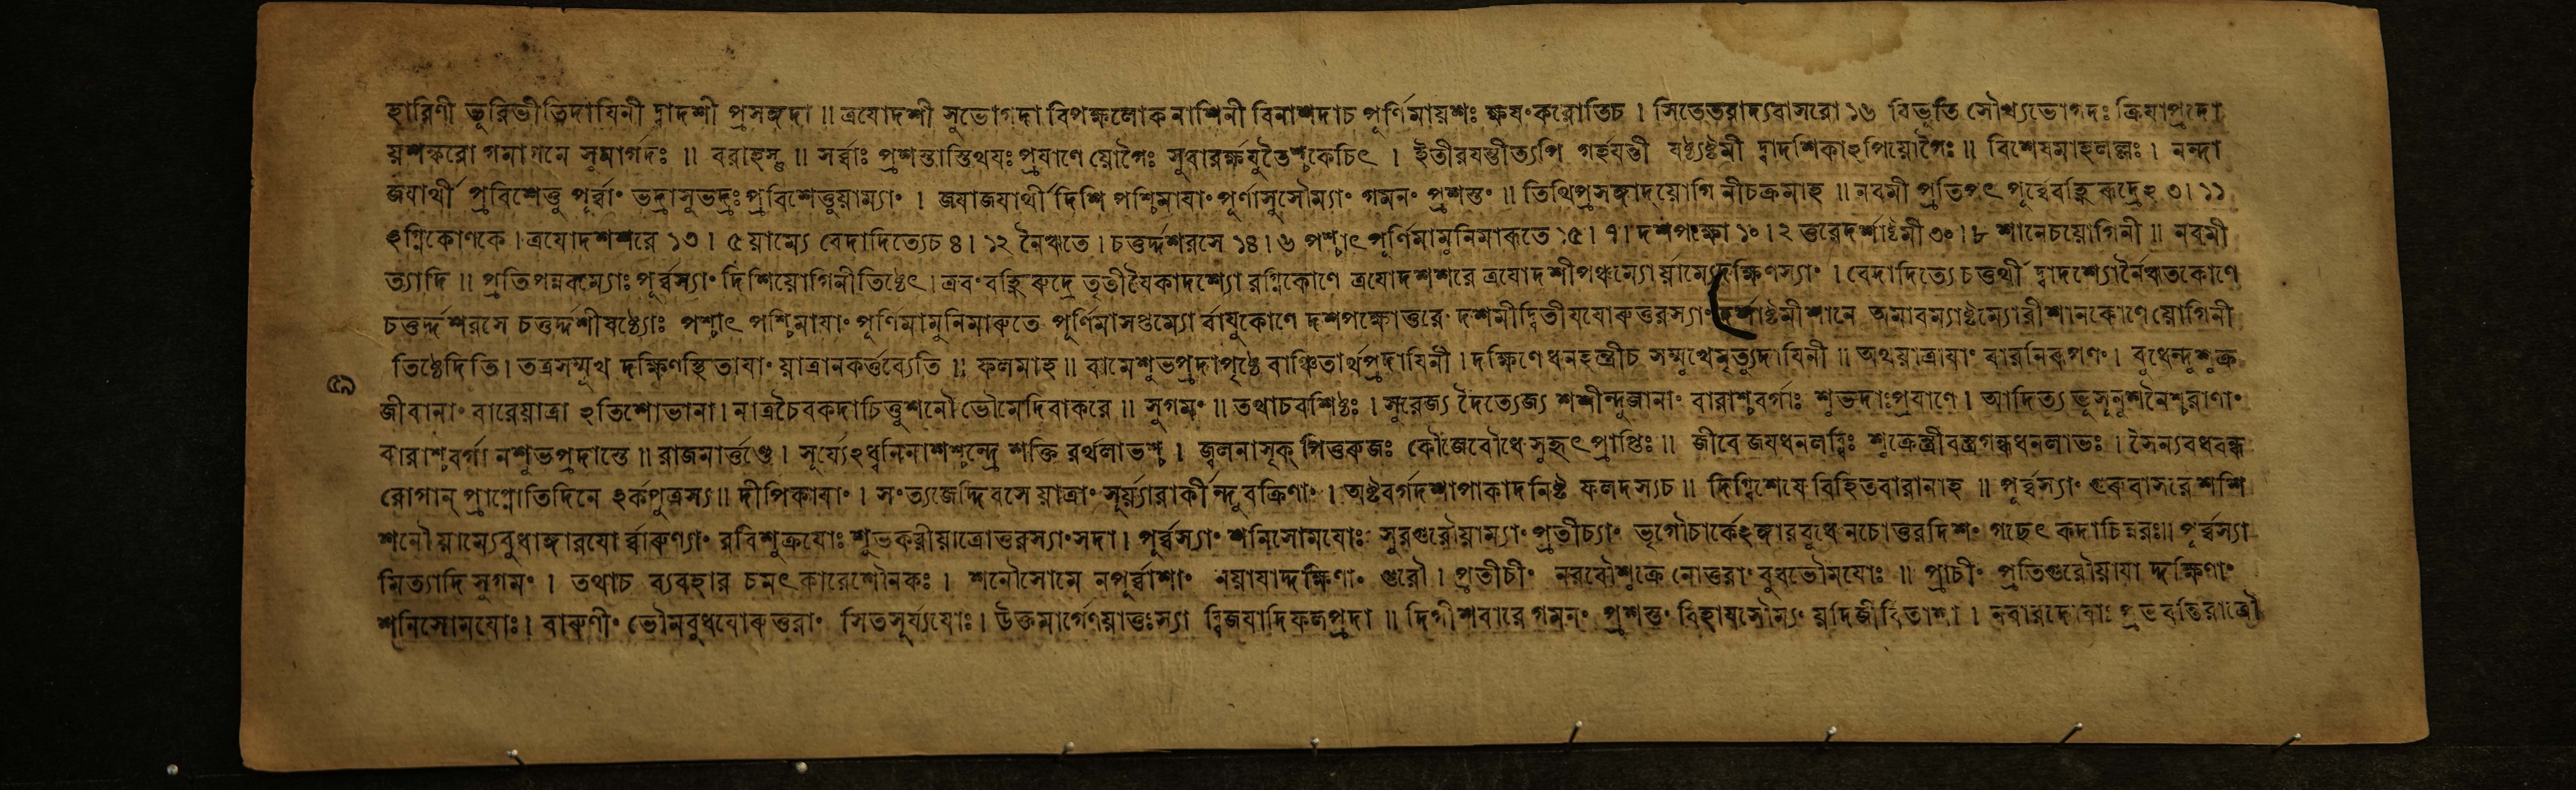 হারিণী ভূরিভীতিদাযিনী দ্বাদশী প্রসঙ্গদা ॥ ত্রযোদশী সুভোগদা বিপক্ষলোকনাশিনী বিনাশদাচ পূর্ণিমাযশঃ ক্ষযংকরোতিচ । সিতেতরাদ্যবাসরো ১৬ বিভূতি সৌখ্যভোগদঃ ক্রিযাপ্রদো
যশস্করো গমাগমে সুমার্গদঃ ॥ বরাহস্তু ॥ সর্ব্বাঃ প্রশস্তাস্তিথযঃ প্রযাণে যোগৈঃ সুবারর্ক্ষযুতৈশ্চকেচিৎ । ইতীরযন্তীত্যপি গর্হযন্তী ষষ্ট্যষ্টমী দ্বাদশিকাঽপিযোগৈঃ ॥ বিশেষমাহলল্লঃ । নন্দা
জযার্থী প্রবিশেত্তু পূর্ব্বাং ভদ্রাসুভদ্রঃ প্রবিশেত্তুযাম্যাং । জযাজযার্থী দিশি পশ্চিমাযাং পূর্ণাসুসৌম্যাং গমনং প্রশস্তং ॥ তিথিপ্রসঙ্গাদ্যোগিনীচক্রমাহ ॥ নবমী প্রতিপৎ পূর্ব্বেবহ্নি ৰুদ্রেঽ ৩। ১১
ঽগ্নিকোণকে । ত্রযোদশশরে ১৩ । ৫ যাম্যে বেদাদিত্যেচ ৪। ১২ নৈঋতে । চতুর্দ্দশরসে ১৪। ৬ পশ্চাৎ পূর্ণিমামুনিমাৰুতে ১৫। ৭। দশপক্ষো ১০। ২ ত্তরেদর্শাষ্টমী ৩০। ৮ শানেচযোগিনী ॥ নবমী
ত্যাদি ॥ প্রতিপন্নবম্যোঃ পূর্ব্বস্যাং দিশিযোগিনীতিষ্ঠেৎ । ত্রবং বহ্নি ৰুদ্রে তৃতীযৈকাদশ্যো রগ্নিকোণে ত্রযোদশশরে ত্রযোদশীপঞ্চম্যোর্যাম্যেদক্ষিণস্যাং । বেদাদিত্যে চতুর্থী দ্বাদশ্যোর্নৈঋতকোণে
চতুর্দ্দশরসে চতুর্দ্দশীষষ্ঠ্যোঃ পশ্চাৎ পশ্চিমাযাং পূর্ণিমামুনিমাৰুতে পূর্ণিমাসপ্তম্যো র্বাযুকোণে দশপক্ষোত্তরে দশমীদ্বিতীযযোৰুত্তরস্যাং দর্শাষ্টমীশানে অমাবস্যাষ্টম্যোরীশানকোণে যোগিনী
তিষ্ঠেদিতি । তত্রসম্মুখ দক্ষিণস্থিতাযাং যাত্রানকর্ত্তব্যেতি ॥ ফলমাহ ॥ বামেশুভপ্রদাপৃষ্ঠে বাঞ্ছিতার্থপ্রদাযিনী । দক্ষিণেধনহন্ত্রীচ সম্মুখেমৃত্যুদাযিনী ॥ অথযাত্রাযাং বারনিৰূপণং । বুধেন্দুশুক্র
জীবানাং বারেযাত্রা ঽতিশোভানা । নাত্রচৈবকদাচিত্তুশনৌ ভৌমেদিবাকরে ॥ সুগমং ॥ তথাচবশিষ্ঠঃ । সুরেজ্য দৈত্যেজ্য শশীন্দুজানাং বারাশ্চবর্গাঃ শুভদাঃপ্রযাণে । আদিত্য ভূসূনুশনৈশ্চরাণাং
বারাশ্চবর্গা নশুভপ্রদাস্তে ॥ রাজমার্ত্তণ্ডে । সূর্য্যেঽধ্বনিনাশশ্চন্দ্রে শক্তি রর্থলাভশ্চ । জ্বলনাসৃক্ পিত্তৰুজঃ কৌজেবৌধে সুহৃৎপ্রাপ্তিঃ ॥ জীবে জযধনলব্ধিঃ শুক্রেস্ত্রীবস্ত্রগন্ধধনলাভঃ । দৈন্যবধবন্ধ
রোগান্ প্রাপ্নোতিদিনে ঽর্কপুত্রস্য ॥ দীপিকাযাং । সংত্যজেদ্দিবসে যাত্রাং সূর্য্যারার্কীন্দুবক্রিণাং । অষ্টবর্গদশাপাকাদনিষ্ট ফলদস্যচ ॥ দিগ্বিশেষে বিহিতবারানাহ ॥ পূর্ব্বস্যাং গুৰুবাসরেশশি
শনৌযাম্যেবুধাঙ্গারযো র্ব্বাৰুণ্যাং রবিশুক্রযোঃ শুভকরীযাত্রোত্তরস্যাংসদা । পূর্ব্বস্যাং শনিসোমযোঃ সুরগুরৌযাম্যাং প্রতীচ্যাং ভৃগৌচার্কেঽঙ্গারবুধে নচোত্তরদিশং গচ্ছেৎ কদাচিন্নরঃ ॥ পূর্ব্বস্যা
মিত্যাদি সুগমং । তথাচ ব্যবহার চমৎকারেশৌনকঃ । শনৌসোমে নপূর্ব্বাশাং নযাযাদ্দক্ষিণাং গুরৌ । প্রতীচীং নরবৌশুক্রে নোত্তরাং বুধভৌমযোঃ ॥ প্রাচীং প্রতিগুরৌযাযা দ্দক্ষিণাং
শনিসোমযোঃ । বাৰুণীং ভৌমবুধযোৰুত্তরাং সিতসূর্য্যযোঃ । উক্তমার্গেণযাত্তঃস্যা দ্বিজযাদিফলপ্রদা ॥ দিগীশবারে গমনং প্রশস্তং বিহাযসৌম্যং যদিজীবিতাশা । নবারদোষাঃ প্রভবন্তিরাত্রৌ
৫৯